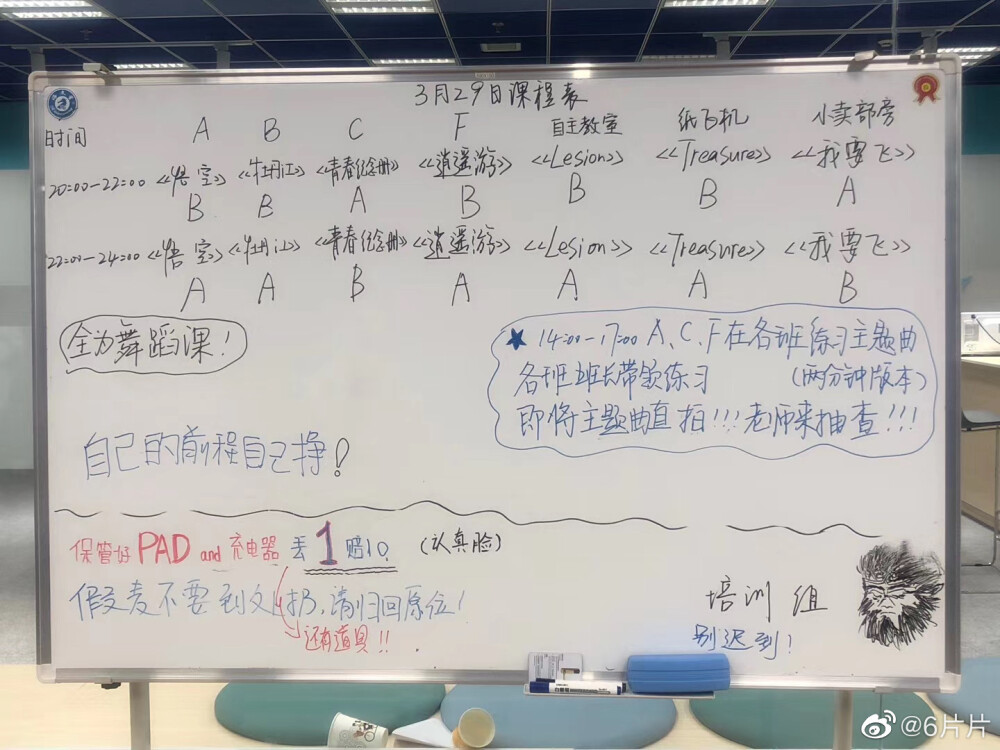 3月29日课程表
时间 A B C F 自主教室 纸飞机 小卖部旁
20:00-22:00 《悟空》 《牡丹江》 《青春纪念册》 《逍遥游》 《Lesion》 《Treasure》 《我要飞》
B B A B B B A
22:00-24:00 《悟空》 《牡丹江》 《青春纪念册》 《逍遥游》 《Lesion》 《Treasure》 《我要飞》
A A B A A A B
全为舞蹈课!
★ 14:00-17:00 A、C、F在各班练习主题曲
各班班长带领练习 (两分钟版本)
即将主题曲直拍!!!老师来抽查!!!
自己的前程自己挣!
保管好PAD and 充电器 丢1赔10. (认真脸)
假麦不要到处扔,请归回原位!
还有道具!!
培训组
别迟到!
@6片片